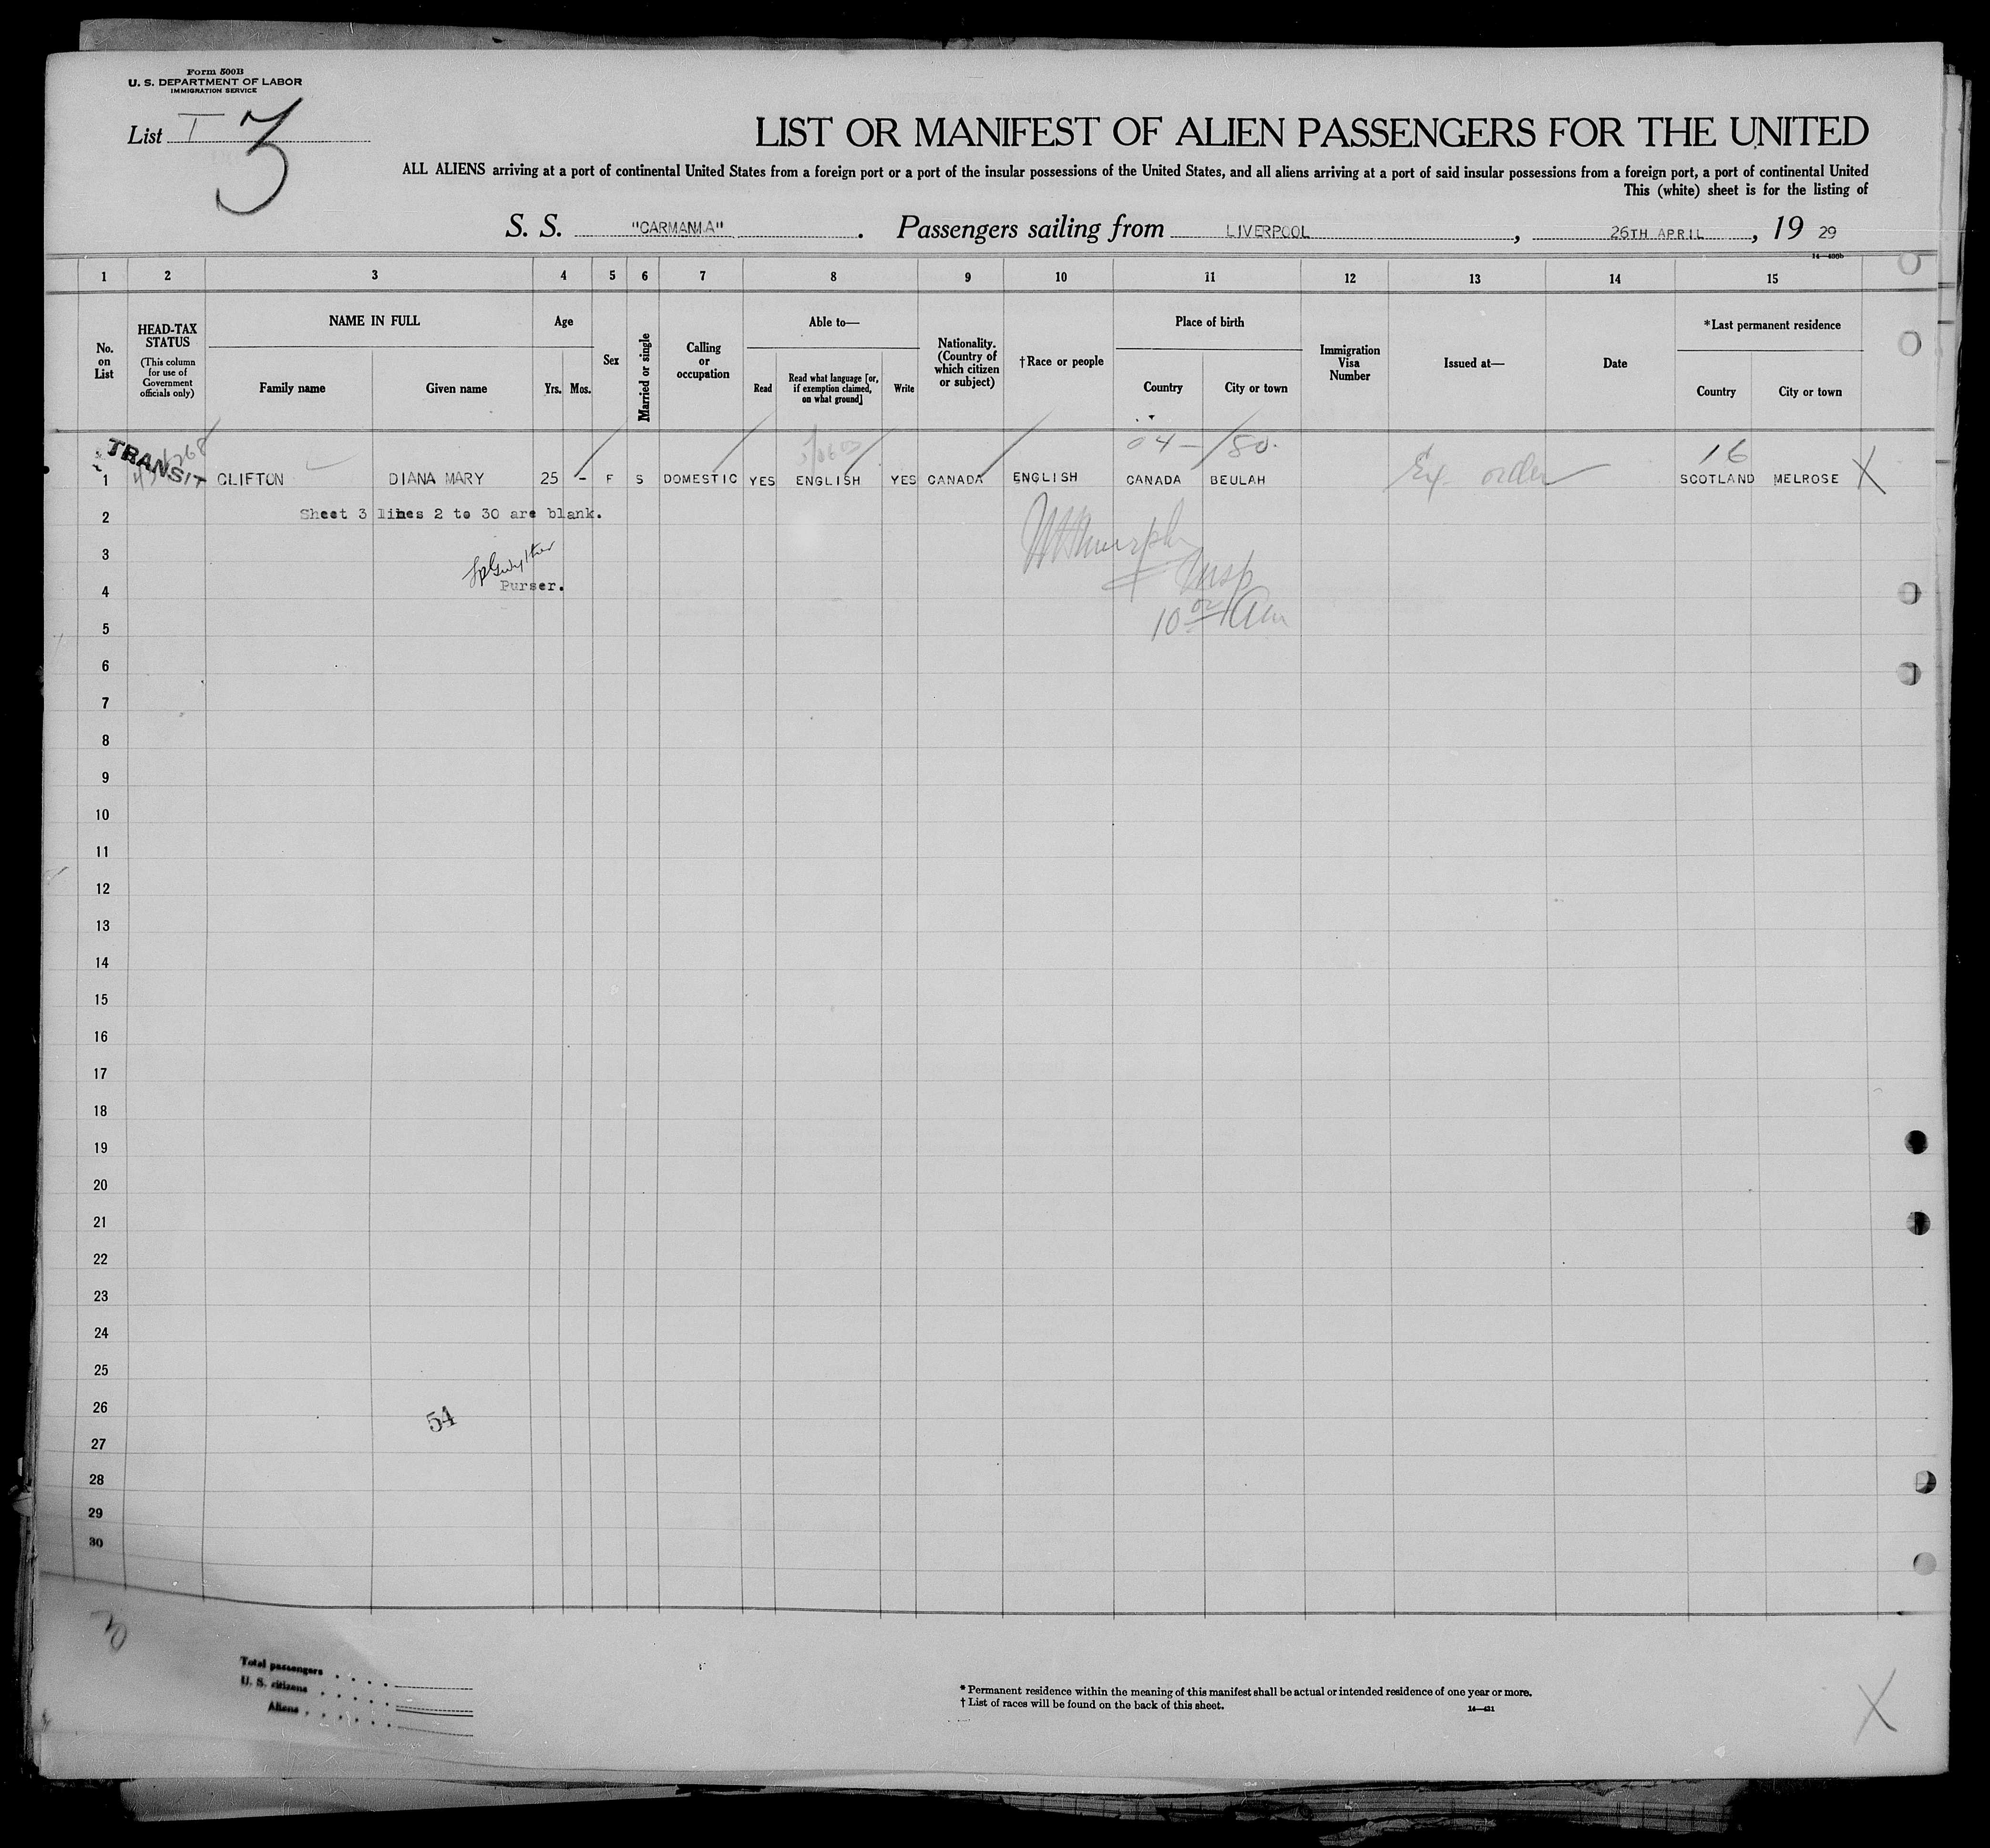 Form 500B
U. S. DEPARTMENT OF LABOR
IMMIGRATION SERVICE
List T 3
LIST OR MANIFEST OF ALIEN PASSENGERS FOR THE UNITED
ALL ALIENS arriving at a port of continental United States from a foreign port or a port of the insular possessions of the United States, and all aliens arriving at a port of said insular possessions from a foreign port, a port of continental United
This (white) sheet is for the listing of
S. S. "CARMANIA" . Passengers sailing from LIVERPOOL , 26TH APRIL , 19 29
1 2 3 4 5 6 7 8 9 10 11 12 13 14 15
No. on List
HEAD-TAX STATUS
(This column for use of Government officials only)
NAME IN FULL
Family name Given name
Age
Yrs. Mos.
Sex
Married or single
Calling or occupation
Able to—
Read
Read what language [or, if exemption claimed, on what ground]
Write
Nationality. (Country of which citizen or subject)
†Race or people
Place of birth
Country City or town
Immigration Visa Number
Issued at—
Date
*Last permanent residence
Country City or town
04 - 180. 16
1 TRANSIT CLIFTON DIANA MARY 25 - F S DOMESTIC YES ENGLISH YES CANADA ENGLISH CANADA BEULAH Ex. order SCOTLAND MELROSE X
2 Sheet 3 lines 2 to 30 are blank.
3
Insp
4 Purser.
10 00 Am
5
6
7
8
9
10
11
12
13
14
15
16
17
18
19
20
21
22
23
24
25
26
54
27
28
29
30
Total passengers
U. S. citizens
Aliens
* Permanent residence within the meaning of this manifest shall be actual or intended residence of one year or more.
† List of races will be found on the back of this sheet.
X